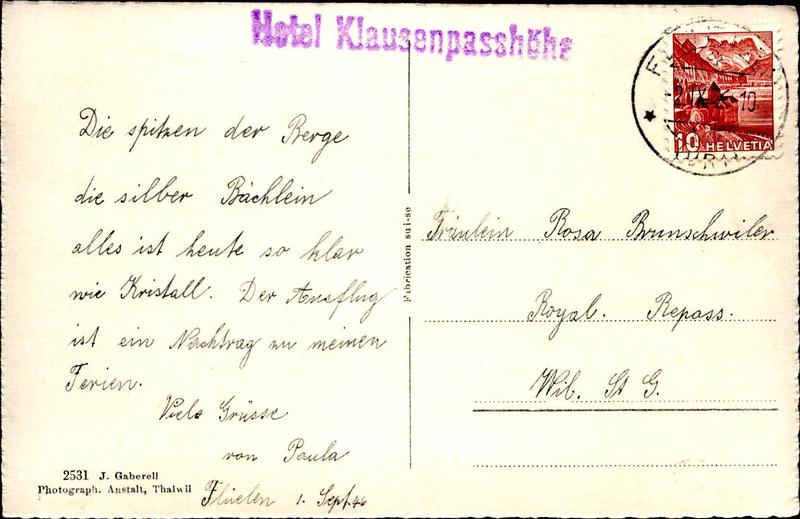 Hotel Klausenpasshöhe
10 HELVETIA
Die spitzen der Berge
die silber Bächlein
alles ist heute so klar
wie Kristall. Der Ausflug
ist ein Nachtrag zu meinen
Ferien.
Viele Grüsse
von Paula
Flüelen 1. Sept. 46
2531 J. Gaberell
Photograph. Anstalt, Thalwil
Fabrication suisse
Fräulein Rosa Brunschwiler
Royal. Repass.
Wil. St G.